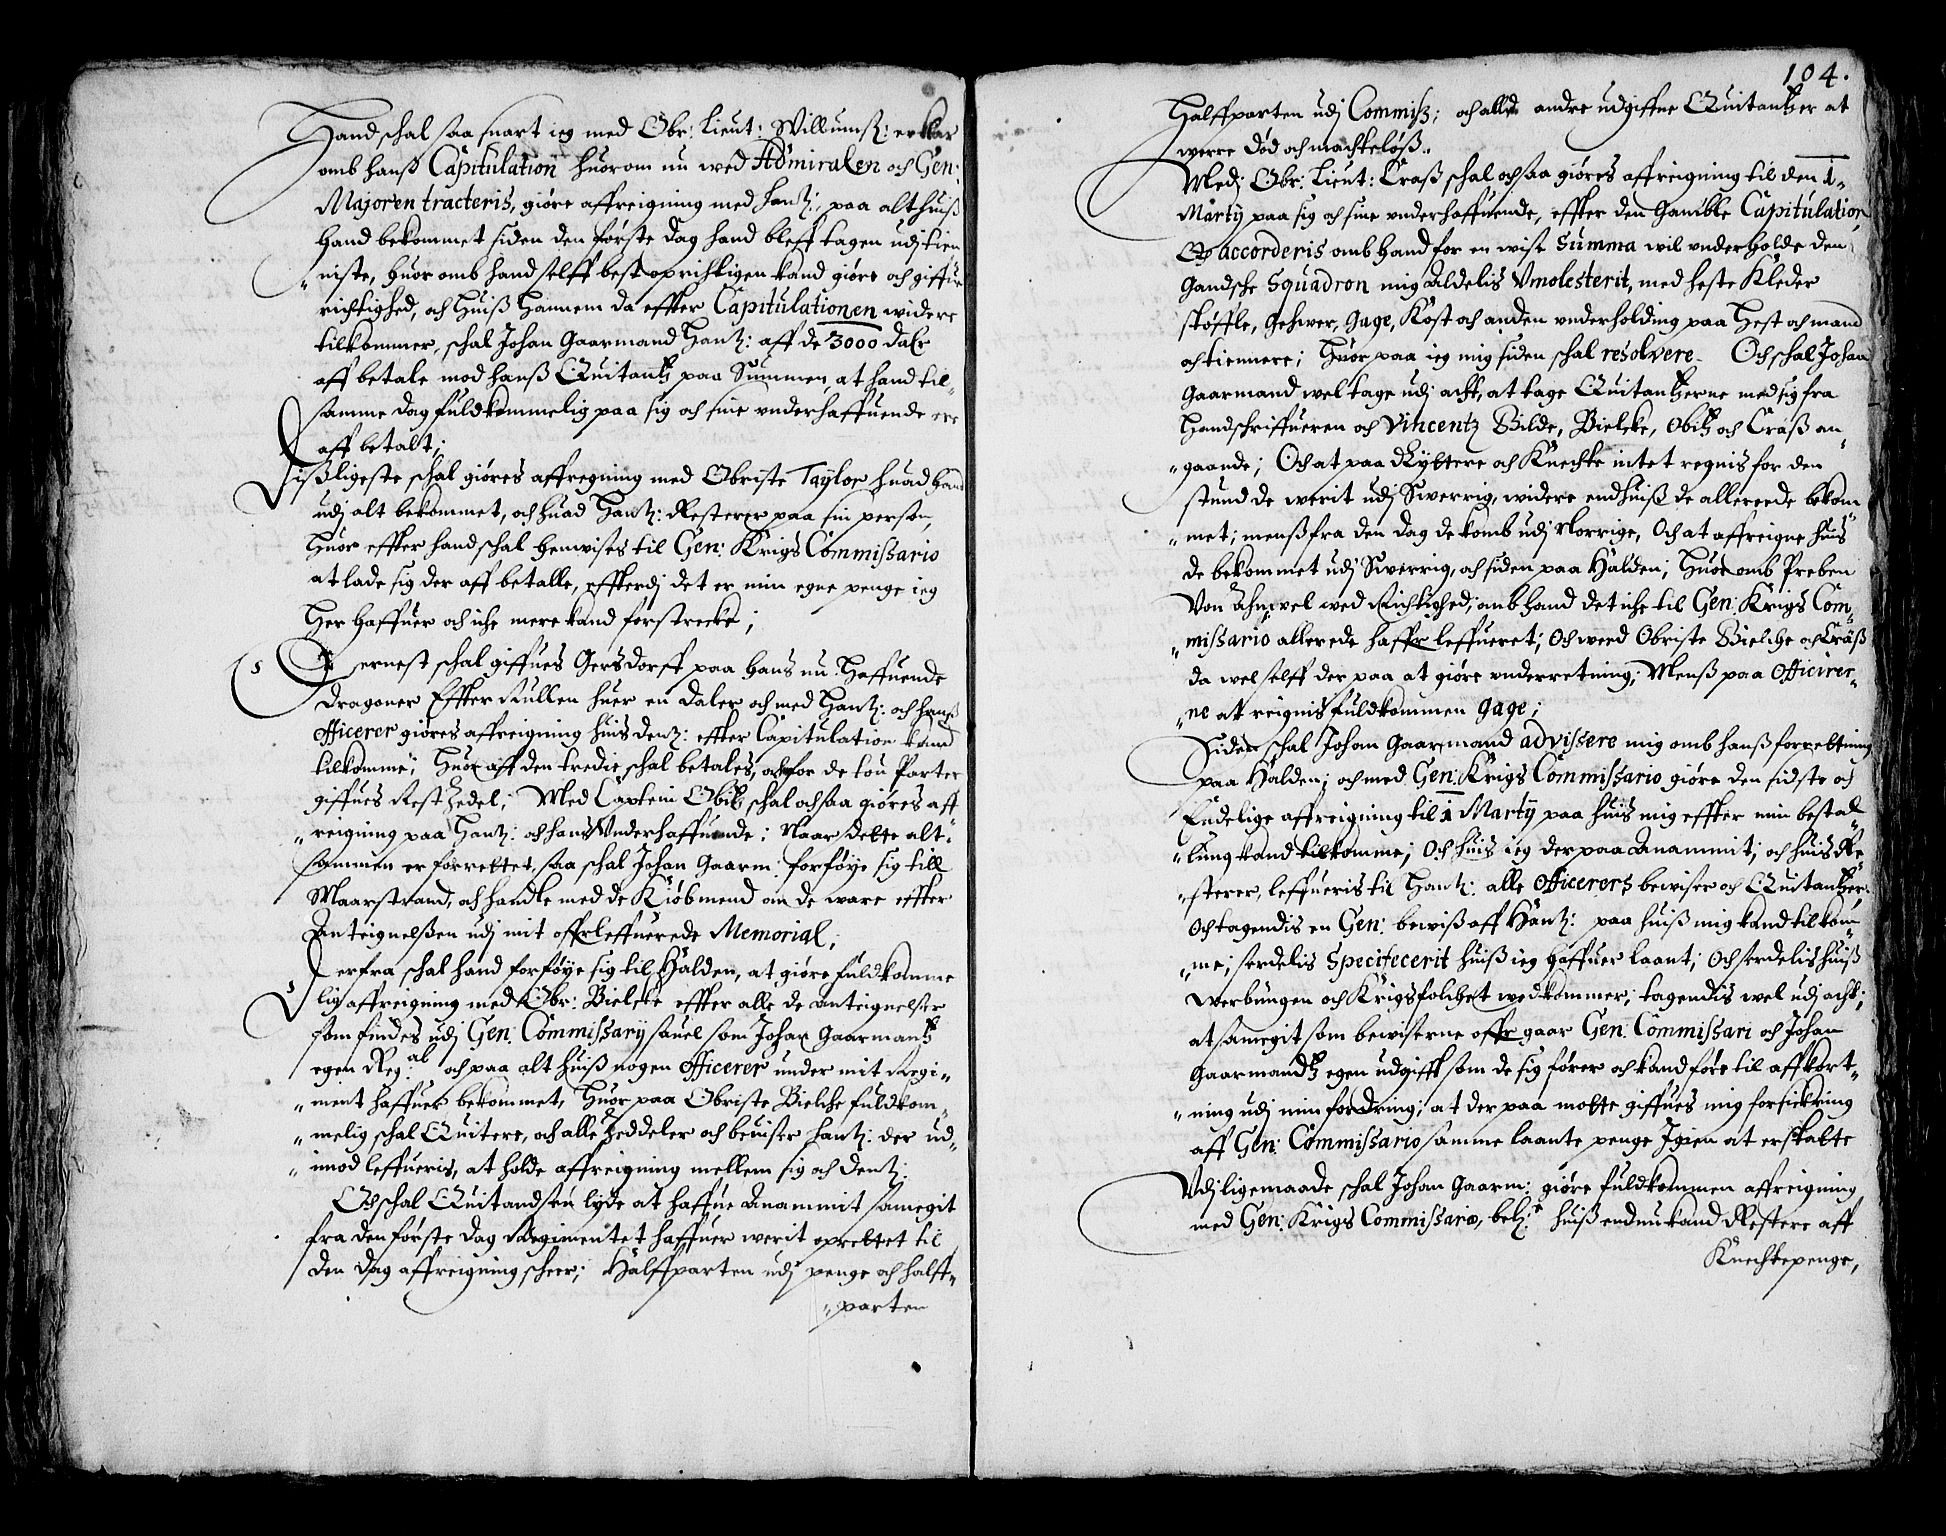 Hand schal saa snart ieg med Obr: Lieut: Willumß: er klar
omb hanß Capitulation huorom nu wed Admiralen och Gen:
Majoren tracteris, giöre affreigning med hantz:, paa alt huiß
hand bekommet siden den förste dag hand bleff tagen udj tien
„niste, huor omb hand selff best oprichtigen kand giöre och giffue
richtighed, och huiß hannem da effter Capitulationen widere
tilkommer, schal Johan Gaarmand Hantz: aff de 3000 daler
aff betale mod hanß Quitantz paa Summen, at hand til„
samme dag fuldkommelig paa sig och sine underhaffuende ere
aff betalt;
Dißligeste schal giöres affregning med Obriste Taylor huad hand
udj alt bekommet, och huad Hantz: Resterer paa sin person,
huor effter hand schal henwises til Gen: Krigs Commissario
at lade sig der aff betalle, effterdj det er min egne penge ieg
her haffuer och iche mere kand forstrecke;
Dernest schal giffues Gersdorff paa hans nu haffuende
Dragoner Effter Rullen huer en daler och med Hantz: och hanß
Officerer giöres affreigning huis dentz: effter Capitulation kand
tilkomme; huor aff den tredie schal betales, och for de tou Parter
giffues Rest Zedel; Med Captein Obitz schal och saa giöres aff
„reigning paa Hantz: och hans Underhaffuende: Naar dette alt„
sammen er forrettet, saa schal Johan Gaarm: forföye sig till
Maarstrand, och handle med de Kiöbmend om de ware effter
Anteignelßen udj mit offrleffuerede Memorial;
Derfra schal hand forföye sig til Halden, at giöre fuldkomme
lig affreigning med Obr: Bielcke effter alle de anteignelser
som findes udj Gen: Commissarij sauel som Johan Gaarmantz
egen Reg:al och paa alt huiß nogen Officerer under mit Regi„
„ment haffuer bekommet, Huor paa Obriste Bielche fuldkom„
„melig schal Quitere, och alle Zeddeler och beuiser hantz: der ud„
„imod leffueris, at holde affreigning mellem sig och dentz:
Och schal Quitandsen lyde at haffue anammit samegit
fra den förste dag Regimentet haffuer werit oprettet til
den dag affreigning scheer; Halffparten udj penge och halff„
„parten
104.
Halffparten udj Commiß; och alle andre udgiffne Quitantzer at
werre död och machtelöß.
Med Obr: Lieut: Craß schal och saa giöres affreigning til den 1„
Martij paa sig och sine underhaffuende, effter den Gamble Capitulation
Et accorderis omb hand for en wist Summa wil underholde den
Gandsche Squadron mig aldelis Umolesterit, med heste Kleder
stöffle, Gehwer, Gage, Kost och anden underholding paa Hest och mand
och tiennere; huor paa ieg mig siden schal resolvere. Och schal Johan
Gaarmand wel tage udj acht, at tage Quitantzerne med sig fra
Handschriffueren och Vincentz Bilde, Bielcke, Obitz och Craß an„
„gaande; Och at paa Ryttere och Knechte intet regnis for den
stund de werit udj Swerrig, widere end huiß de allereede bekom„
„met; menß fra den dag de komb udj Norrige, Och at affreigne huis
de bekommet udj Swerrig, och siden paa Halden; Huor omb Preben
Von Ahn wel wed Richtighed; omb hand det iche til Gen: Krigs Com„
„missario allerede haffr leffueret; Och werd Obriste Bielche och Craß
da wel selff der paa at giöre underretning; Menß paa Officirer„
„ne at reignis fuldkommen Gage;
Siden schal Johan Gaarmand advissere mig omb hanß forrettning
paa Halden; och med Gen: Krigs Commissario giöre den sidste och
Endelige affreigning til 1 Martij paa huis mig effter min bestal„
„lung kand tilkomme; Och huis ieg der paa anammit; och huis Re„
„sterer, leffueris til Hantz: alle Officerers bewiser och Quitantzer,
Och tagendis en Gen: bewiß aff Hantz: paa huiß mig kand tilkom„
„me; serdelis Specificerit huiß ieg haffuer laant; Och serdelis huiß
Werbungen och Krigsfolchet wedkommer; tagendis wel udj acht;
at samegit som bewiserne offr gaar Gen: Commissari och Johan
Gaarmandtz egen udgifft som de sig förer och kand före til affkort„
„ning udj min fordring; at der paa motte giffues mig forsickring
aff Gen: Commissario samme laante penge Igien at erstatte
Udj ligemaade schal Johan Gaarm: giöre fuldkommen affreigning
med Gen: Krigs Commissario, huiß endnu kand Restere aff
Knechtepenge,